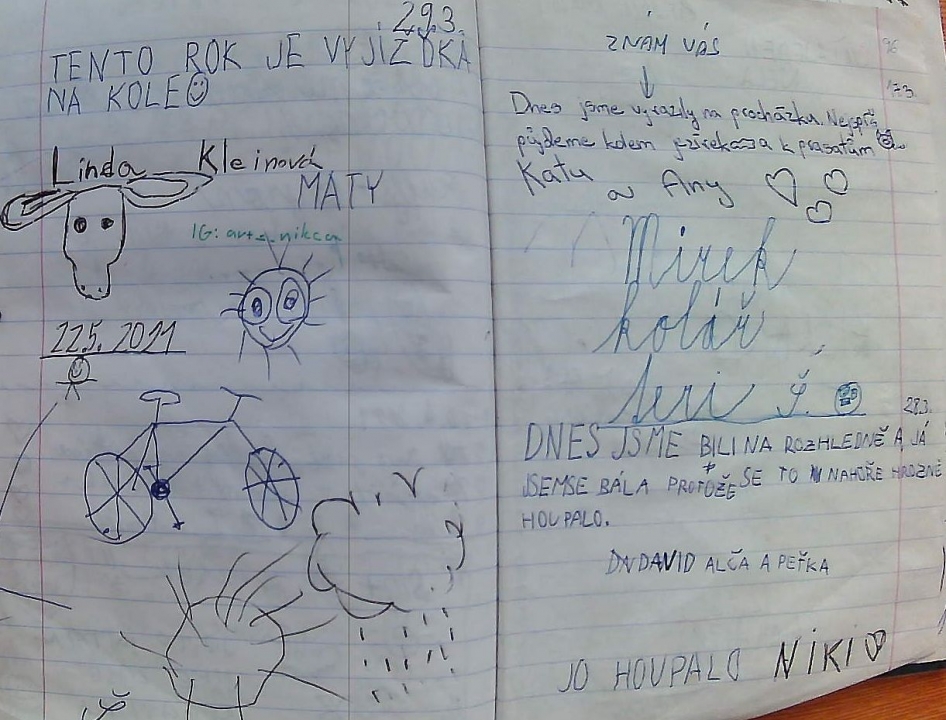 29.3.
TENTO ROK JE VYJÍZĎKA
NA KOLE
Linda Kleinová
MATY
IG: art_nikca
22.5. 2021
ZNÁM VÁS
96
17.3.
Dnes jsme vyrazily na procházku. Nejspíš
půjdeme kolem a k prasatům
Katu
a Any
Mirek
kolář
seri
28.3.
DNES JSME BILI NA ROZHLEDNĚ A JÁ
JSEMSE BÁLA PROTOŽE SE TO NAHOŘE HROZNĚ
HOUPALO.
DAVID ALČA A PEŤKA
JO HOUPALO NIKI